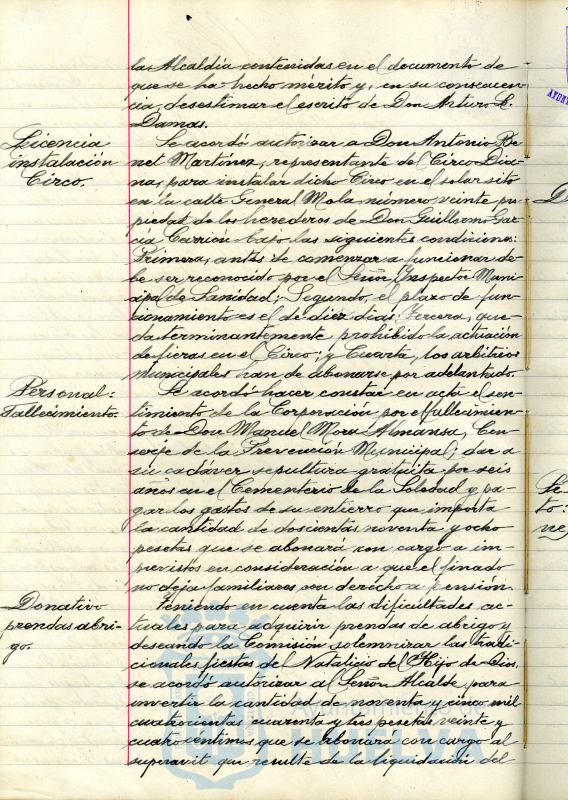 la Alcaldía contenidas en el documento de
que se ha hecho mérito y, en su consecuen-
cia, desestimar el escrito de Don Arturo L.
Damas.
Licencia
instalación
Circo.
Se acordó autorizar a Don Antonio Be-
net Martínez, representante del Circo Dia-
na, para instalar dicho Circo en el solar sito
en la calle General Mola número veinte pro-
piedad de los herederos de Don Guillermo Gar-
cía Carrión bajo las siguientes condiciones:
Primera, antes de comenzar a funcionar de-
be ser reconocido por el Señor Inspector Muni-
cipal de Sanidad; Segundo, el plazo de fun-
cionamiento es el de diez días; Tercera, que-
da terminantemente prohibido la actuación
de fieras en el Circo; y Cuarta, los arbitrios
municipales han de abonarse por adelantado.
Personal:
Fallecimiento.
Se acordó hacer constar en acta el sen-
timiento de la Corporación por el fallecimien-
to de Don Manuel Mora Almansa, Con-
serje de la Prevención Municipal; dar a
su cadáver sepultura gratuita por seis
años en el Cementerio de la Soledad y pa-
gar los gastos de su entierro que importa
la cantidad de doscientas noventa y ocho
pesetas que se abonará con cargo a im-
previstos en consideración a que el finado
no deja familiares con derecho a pensión.
Donativo
prendas abri-
go.
Teniendo en cuenta las dificultades ac-
tuales para adquirir prendas de abrigo y
deseando la Comisión solemnizar las tradi-
cionales fiestas del Natalicio del Hijo de Dios,
se acordó autorizar al Señor Alcalde para
invertir la cantidad de noventa y cinco mil
cuatrocientas cuarenta y tres pesetas veinte y
cuatro céntimos que se abonará con cargo al
superavit que resulte de la liquidación del
Ayuntamiento de
HUELVA